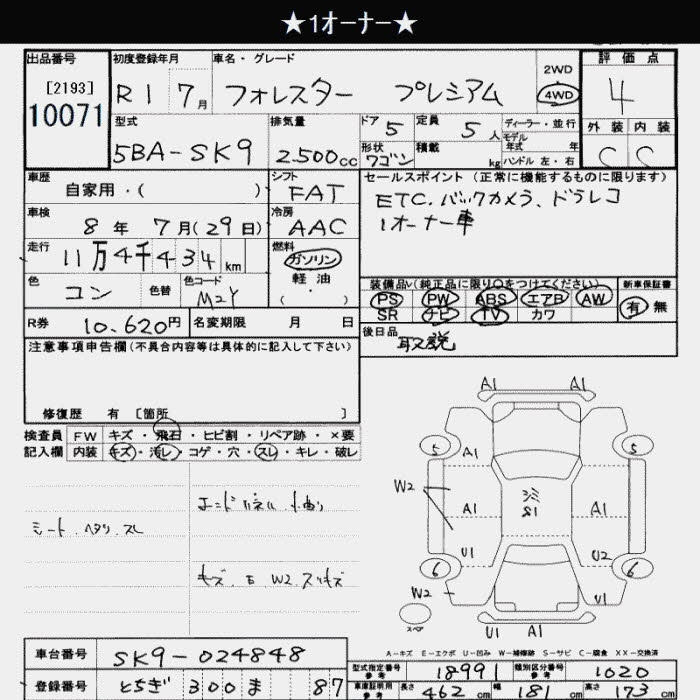 ★1オーナー★
出品番号 初度登録年月 車名・グレード 評価点
[2193] R1 7月 フォレスター プレシアム 2WD 4WD 4
10071
型式 排気量 ドア 5 定員 5人 ディーラー・並行 外装 内装
モデル年式 年
5BA-SK9 2500cc 形状 ワゴン 積載 kg ハンドル 左・右 C C
車歴 シフト セールスポイント(正常に機能するものに限ります)
自家用・( ) FAT ETC. バックカメラ、ドラレコ
車検 冷房 1オーナー車
8年 7月(29日) AAC
走行 11万4千434km 燃料 ガソリン
軽油
色 コン 色替 色コード M2Y ( ・ )
装備品(純正品に限り○をつけてください) 新車保証書
PS PW ABS エアB AW 有 無
SR ナビ TV カワ
R券 10,620円 名変期限 月 日 後日品 取説
注意事項申告欄(不具合内容等は具体的に記入して下さい)
修復歴 有 [箇所 ]
検査員 FW キズ・飛石・ヒビ割・リペア跡・×要
記入欄 内装 キズ・汚レ・コゲ・穴・スレ・キレ・破レ
A1 A1
5 5
A1
W2 A1 S1 A1
U1 U2
6 6
W2 U1
スペア
U1 A1
シート.ヘタリ.スレ
キズ. E W2 スリキズ
A-キズ E-エクボ U-凹み W-補修跡 S-サビ C-腐食 XX-交換済
車台番号 SK9-024848 型式指定番号 参考 18991 類別区分番号 参考 1020
登録番号 とちぎ 300 ま 87 車庫証明用 参考 長さ 462cm 幅 181cm 高さ 173cm